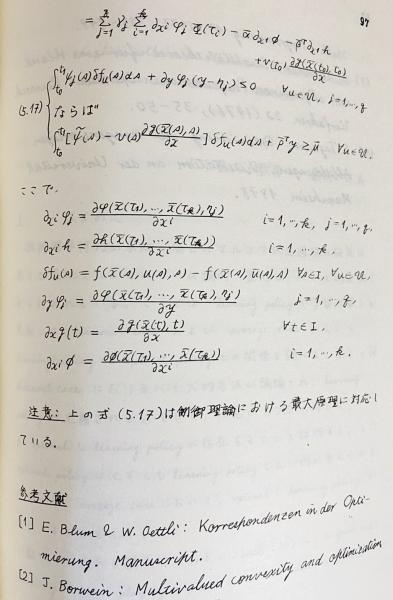 97
= Σ_{j=1}^{q} γ_j Σ_{i=1}^{k} ∂_{xi} φ_j Φ(τ_i) − ᾱ ∂_{x1} φ − β̄^T ∂_{x1} h
+ ν(t_0) ∂g(x̄(t_0), t_0)/∂x
∫_{t_0}^{t_1} ψ_j(s) δf_u(s) ds + ∂_y φ_j (y − η_j) ≤ 0 ∀u∈𝒰, j=1,…,q
(5.17) ならば
∫_{t_0}^{t_1} [ψ̃(s) − ν(s) ∂g(x̄(s), s)/∂x] δf_u(s) ds + β̄^T y ≥ μ̄ ∀u∈𝒰.
ここで、
∂_{xi} φ_j = ∂φ(x̄(τ_1), …, x̄(τ_k), η_j)/∂x_i i=1,…,k, j=1,…,q,
∂_{xi} h = ∂h(x̄(τ_1), …, x̄(τ_k))/∂x_i i=1,…,k,
δf_u(s) = f(x̄(s), u(s), s) − f(x̄(s), ū(s), s) ∀s∈I, ∀u∈𝒰,
∂_y φ_j = ∂φ(x̄(τ_1), …, x̄(τ_k), η_j)/∂y j=1,…,q,
∂_x g(t) = ∂g(x̄(t), t)/∂x ∀t∈I,
∂_{xi} ϕ = ∂ϕ(x̄(τ_1), …, x̄(τ_k))/∂x_i i=1,…,k.
注意: 上の式 (5.17)は制御理論における最大原理に対応し
ている.
参考文献
[1] E. Blum & W. Oettli: Korrespondenzen in der Opti-
mierung. Manuscript.
[2] J. Borwein: Multivalued convexity and optimization